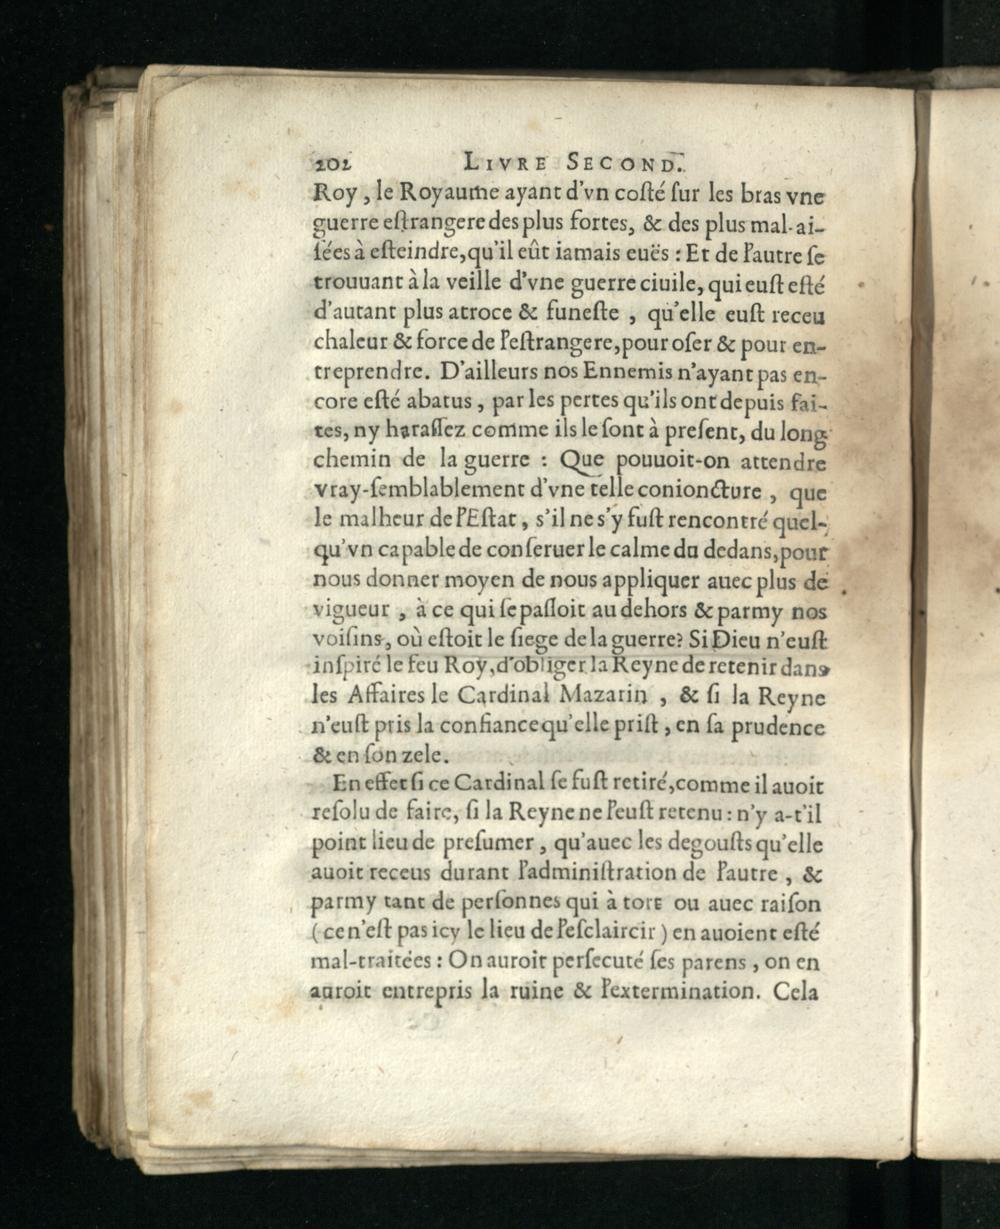 202 LIVRE SECOND.
Roy, le Royaume ayant d'vn coſté ſur les bras vne
guerre eſtrangere des plus fortes, & des plus mal-ai-
ſées à eſteindre, qu'il eût iamais euës : Et de l'autre ſe
trouuant à la veille d'vne guerre ciuile, qui euſt eſté
d'autant plus atroce & funeſte, qu'elle euſt receu
chaleur & force de l'eſtrangere, pour oſer & pour en-
treprendre. D'ailleurs nos Ennemis n'ayant pas en-
core eſté abatus, par les pertes qu'ils ont depuis fai-
tes, ny haraſſez comme ils le ſont à preſent, du long
chemin de la guerre : Que pouuoit-on attendre
vray-ſemblablement d'vne telle conioncture, que
le malheur de l'Eſtat, s'il ne s'y fuſt rencontré quel-
qu'vn capable de conſeruer le calme du dedans, pour
nous donner moyen de nous appliquer auec plus de
vigueur, à ce qui ſe paſſoit au dehors & parmy nos
voiſins, où eſtoit le ſiege de la guerre? Si Dieu n'euſt
inſpiré le feu Roy, d'obliger la Reyne de retenir dans
les Affaires le Cardinal Mazarin, & ſi la Reyne
n'euſt pris la confiance qu'elle priſt, en ſa prudence
& en ſon zele.
En effet ſi ce Cardinal ſe fuſt retiré, comme il auoit
reſolu de faire, ſi la Reyne ne l'euſt retenu : n'y a-t'il
point lieu de preſumer, qu'auec les degouſts qu'elle
auoit receus durant l'adminiſtration de l'autre, &
parmy tant de perſonnes qui à tort ou auec raiſon
(ce n'eſt pas icy le lieu de l'eſclaircir) en auoient eſté
mal-traitées : On auroit perſecuté ſes parens, on en
auroit entrepris la ruine & l'extermination. Cela